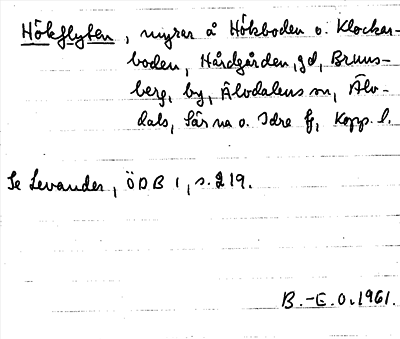 Hökflyten, myrar å Hökboden o. Klockar-
boden, Hårdgården, gd, Bruns-
berg, by, Älvdalens sn, Älv-
dals, Särna o. Idre tg, Kopp. l.
Se Levander, ÖDB 1, s. 219.
B.-E. O. 1961.